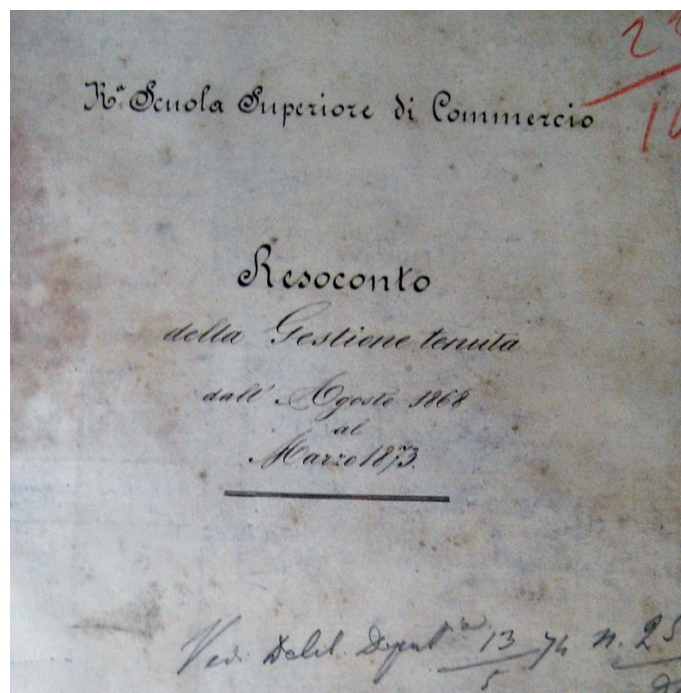 Ra. Scuola Superiore di Commercio
Resoconto
della Gestione tenuta
dall' Agosto 1868
al
Marzo 1873.
Vedi Delib. Deput.a 13/5 74 n. 25